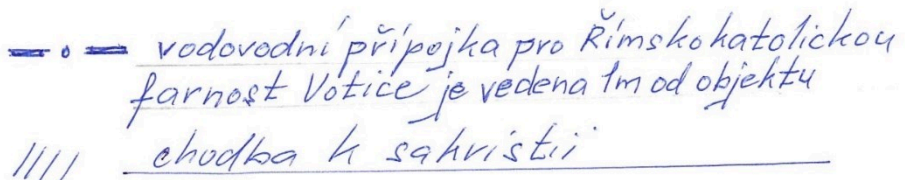 vodovodní přípojka pro Římskokatolickou
farnost Votice je vedena 1m od objektu
chodba k sakristii